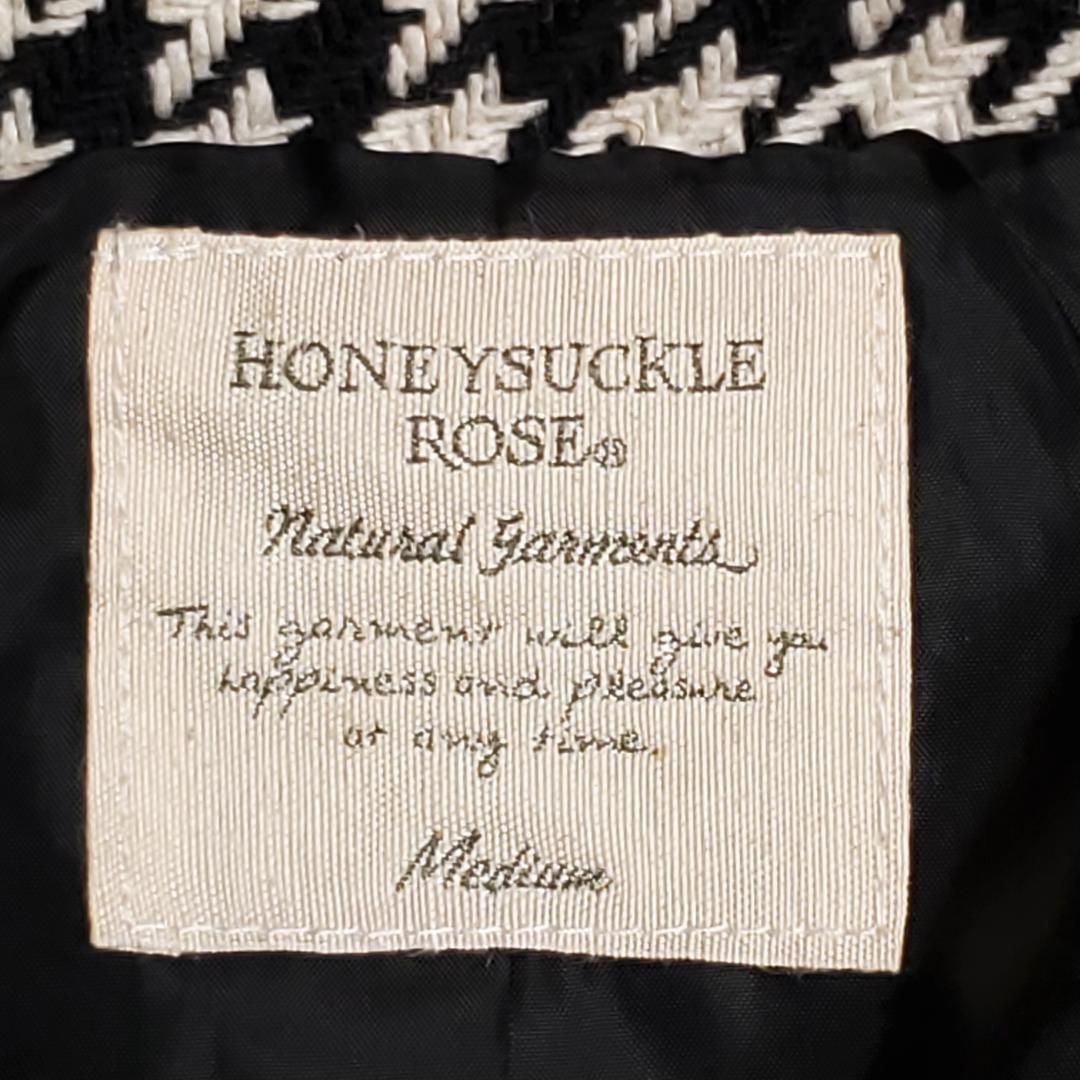 HONEYSUCKLE
ROSE®
Natural Garments
This garment will give you
happiness and pleasure
at any time.
Medium